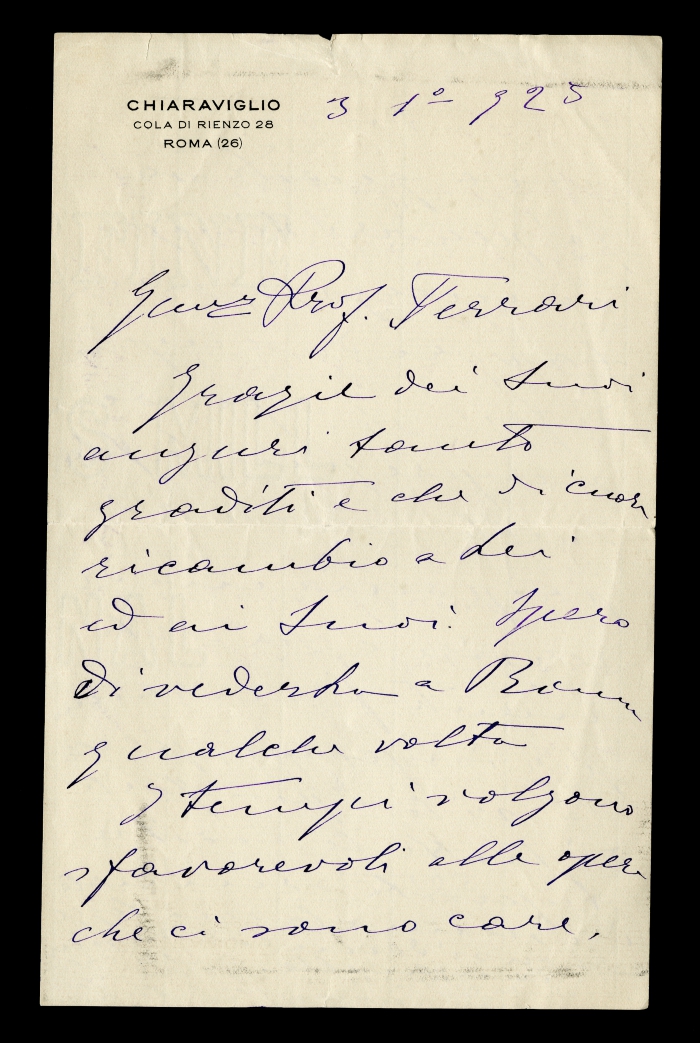 CHIARAVIGLIO
COLA DI RIENZO 28
ROMA (26)
3 1º 925
Prof. Ferrari
Grazie dei Suoi
auguri tanto
graditi e che di cuore
ricambio a Lei
ed ai Suoi. Spero
di vederla a Roma
qualche volta
I tempi volgono
sfavorevoli alle opere
che ci sono care.